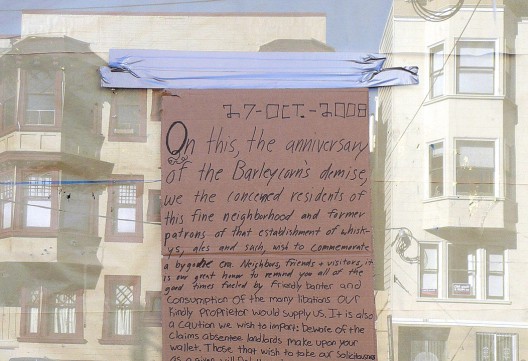 27-OCT.-2008
On this, the anniversary
of the Barleycorn's demise,
we the concerned residents of
this fine neighborhood and former
patrons of that establishment of whisk-
ys, ales and such, wish to commemorate
a bygone era. Neighbors, friends & visitors, it
is our great honor to remind you all of the
good times fueled by friendly banter and
consumption of the many libations our
kindly proprietor would supply us. It is also
a caution we wish to impart: beware of the
claims absentee landlords make upon your
wallet. Those that wish to take our
as a given will